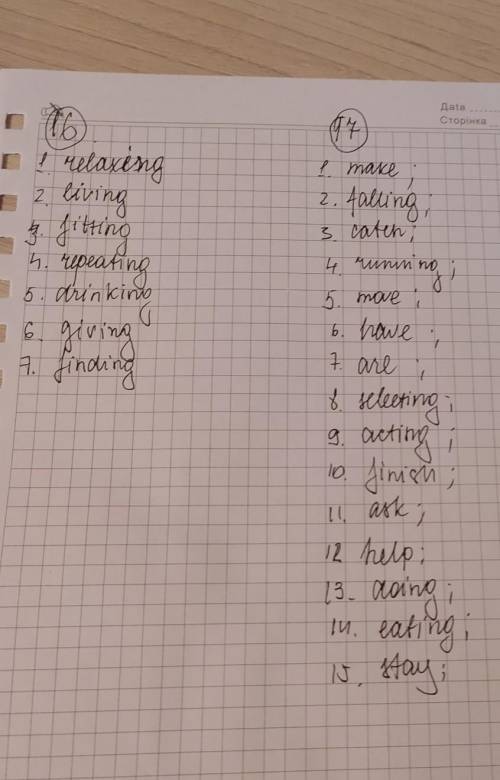 Дата
Сторінка
16
1. relaxing
2. living
3. fitting
4. repeating
5. drinking
6. giving
7. finding
17
1. make;
2. falling;
3. catch;
4. running;
5. move;
6. have;
7. are;
8. selecting;
9. acting;
10. finish;
11. ask;
12. help;
13. doing;
14. eating;
15. stay;